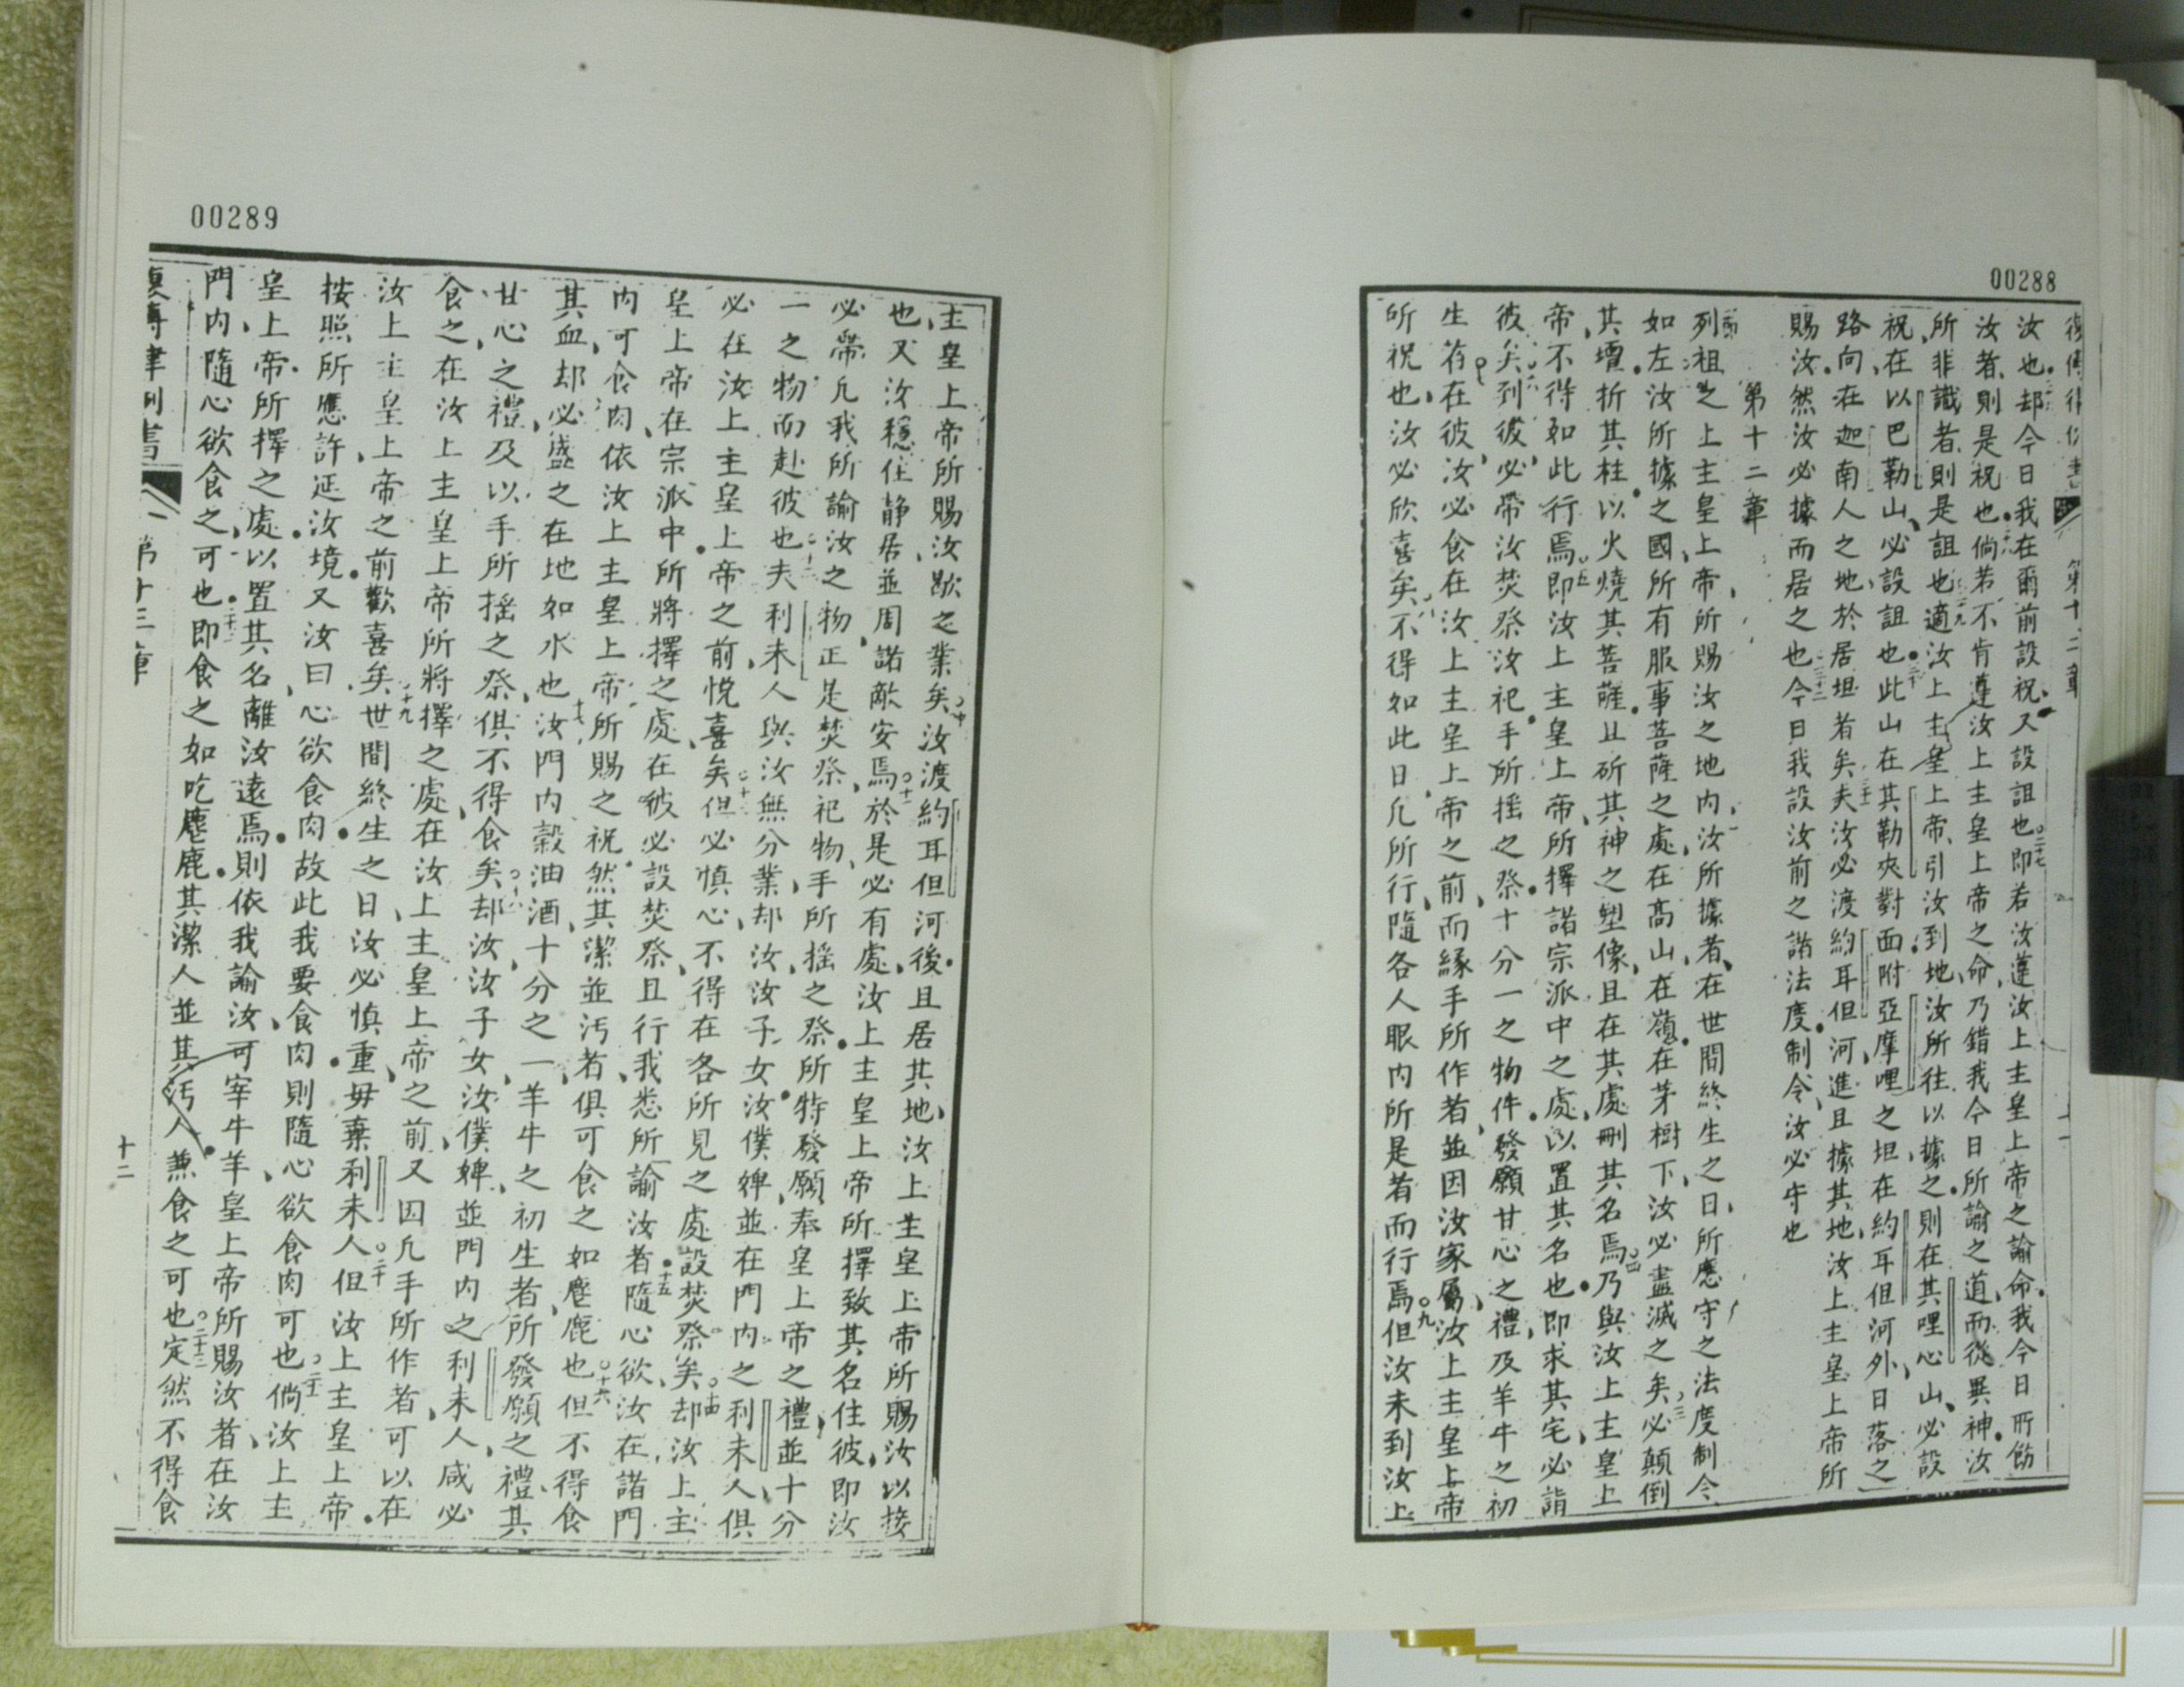 00288
復傳律例書 第十二章
汝也却今日我在爾前設祝又設詛也二十七即若汝遵汝上主皇上帝之諭命我今日所飭
汝者則是祝也倘若不肯遵汝上主皇上帝之命乃錯我今日所諭之道而從異神汝
所非識者則是詛也二十九適汝上主皇上帝引汝到地汝所往以據之則在其哩心山必設
祝在以巴勒山必設詛也三十此山在其勒夾對面附亞摩哩之坦在約耳但河外日落之
路向在迦南人之地於居坦者矣夫汝必渡約耳但河進且據其地汝上主皇上帝所
賜汝然汝必據而居之也三十二今日我設汝前之諸法度制令汝必守也
第十二章
列祖之上主皇上帝所賜汝之地內汝所據者在世間終生之日所應守之法度制令
如左汝所據之國所有服事菩薩之處在高山在嶺在茅樹下汝必盡滅之矣三必顛倒
其壇折其柱以火燒其菩薩且斫其神之塑像且在其處刪其名焉四乃與汝上主皇上
帝不得如此行焉五即汝上主皇上帝所擇諸宗派中之處以置其名也即求其宅必詣
彼矣六到彼必帶汝焚祭汝祀手所搖之祭十分一之物件發願甘心之禮及羊牛之初
生荐在彼汝必食在汝上主皇上帝之前而緣手所作者並因汝家屬汝上主皇上帝
所祝也汝必欣喜矣八不得如此日凡所行隨各人眼內所是者而行焉九但汝未到汝上
十一
00289
主皇上帝所賜汝歇之業矣十汝渡約耳但河後且居其地汝上主皇上帝所賜汝以接
也又汝穩住静居並周諸敵安焉十一於是必有處汝上主皇上帝所擇致其名住彼即汝
必帶凡我所諭汝之物正是焚祭祀物手所搖之祭所特發願奉皇上帝之禮並十分
一之物而赴彼也十二夫利未人與汝無分業却汝汝子女汝僕婢並在門內之利未人俱
必在汝上主皇上帝之前悅喜矣十三但必慎心不得在各所見之處設焚祭矣十四却汝上主
皇上帝在宗派中所將擇之處在彼必設焚祭且行我悉所諭汝者十五隨心欲汝在諸門
內可食肉依汝上主皇上帝所賜之祝然其潔並污者俱可食之如麈鹿也十六但不得食
其血却必盛之在地如水也十七汝門內穀油酒十分之一羊牛之初生者所發願之禮其
甘心之禮及以手所搖之祭俱不得食矣十八却汝汝子女汝僕婢並門內之利未人咸必
食之在汝上主皇上帝所將擇之處在汝上主皇上帝之前又因凡手所作者可以在
汝上主皇上帝之前歡喜矣十九世間終生之日汝必慎重毋棄利未人二十但汝上主皇上帝
按照所應許延汝境又汝曰心欲食肉故此我要食肉則隨心欲食肉可也二十一倘汝上主
皇上帝所擇之處以置其名離汝遠焉則依我諭汝可宰牛羊皇上帝所賜汝者在汝
門內隨心欲食之可也二十二即食之如吃麈鹿其潔人並其污人兼食之可也二十三定然不得食
復傳律例書 第十二章
十二